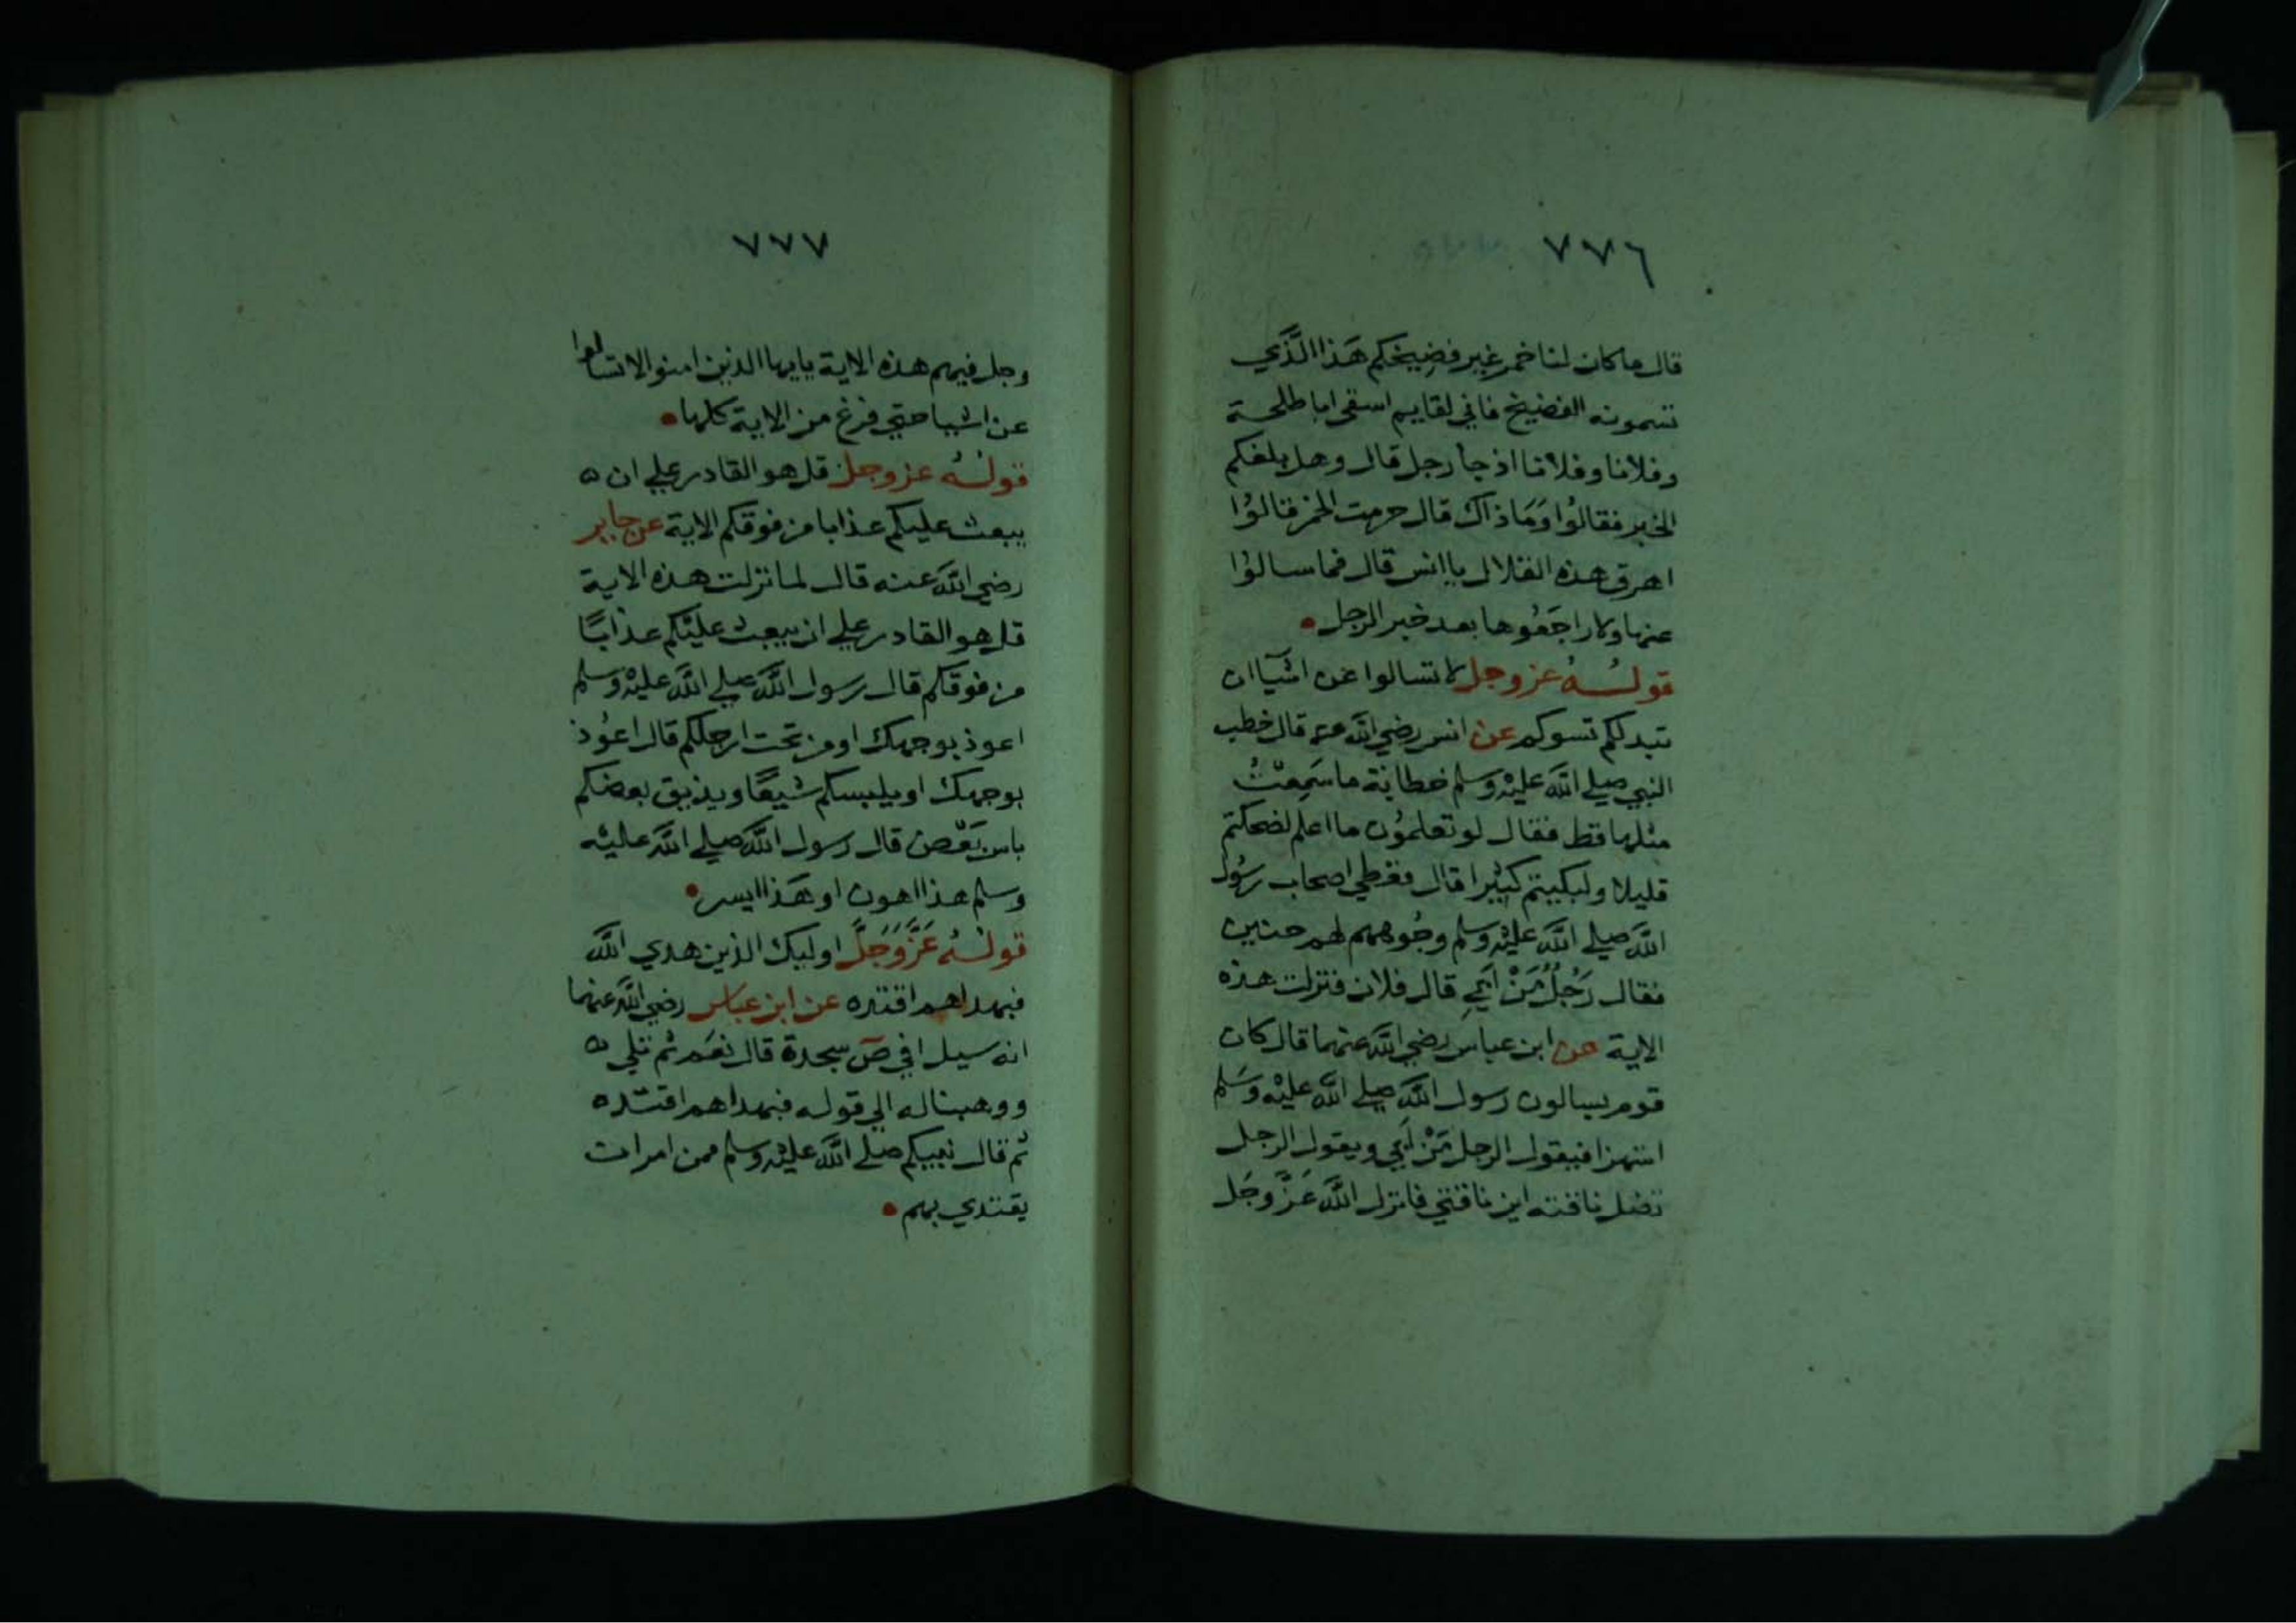 ٧٧٦
قال ما كان لنا خمر غير فضيخكم هَذا الَّذي
تسمونه الفضيخ فاني لقايم اسقى ابا طلحة
وفلانا وفلانا اذ جا رجل قال وهل بلغكم
الخبر فقالوُا وَمَا ذاك قال حرمت الخمر قالوُا
اهرق هذه القلال يا انس قال فما سالوُا
عنها ولا راجَعُوها بعد خبر الرجل
قولــهُ عز وجل لا تسالوا عن اشيآ ان
تبد لكم تسوكم عن انس رضي الله عنه قال خطب
النبي صلى الله عليْه وسلم خطابة ما سَمِعْتُ
مثلها قط فقال لو تعلمُون ما اعلم لضحكتم
قليلا ولبكيتم كثيرا قال فغطي اصحاب رسُول
الله صلى الله عليْه وسلم وجُوههم لهم حنين
فقال رَجُلٌ مَنْ اَبِي قال فلان فنزلت هذه
الاية عن ابن عباس رضي الله عنهما قال كان
قوم يسالون رسول الله صلى الله عليْه وسَلم
استهزا فيقول الرجل مَنْ اَبي ويقول الرجل
تضل ناقته اين ناقتي فانزل الله عَزَّ وجَل
٧٧٧
وجل فيهم هذه الاية يايها الذين امنوا لا تسالوا
عن اشيا حتي فرغ من الاية كلها
قولــهُ عز وجل قل هو القادر علي ان ه
يبعث عليكم عذابا من فوقكم الاية عن جابر
رضي الله عنه قال لما نزلت هذه الاية
قل هو القادر علي ان يبعث عليْكم عذابًا
من فوقكم قال رسول الله صلى الله عليْه وسلم
اعوذ بوجهك او من تحت ارجلكم قال اعُوذ
بوجهك او يلبسكم شيعًا ويذيق بعضكم
باس بَعْض قال رسول الله صلى الله عليْه
وسلم هذا اهون او هَذا ايسر
قولــهُ عَزَّ وَجَلَّ اوليك الذين هدي الله
فبهداهم اقتده عن ابن عباس رضي الله عنهما
انه سيل افي صٓ سجدة قال نعَم ثم تلي ه
ووهبنا له الي قوله فبهداهم اقتده
ثم قال نبيكم صلى الله عليْه وسلم ممن امر ان
يقتدي بهم